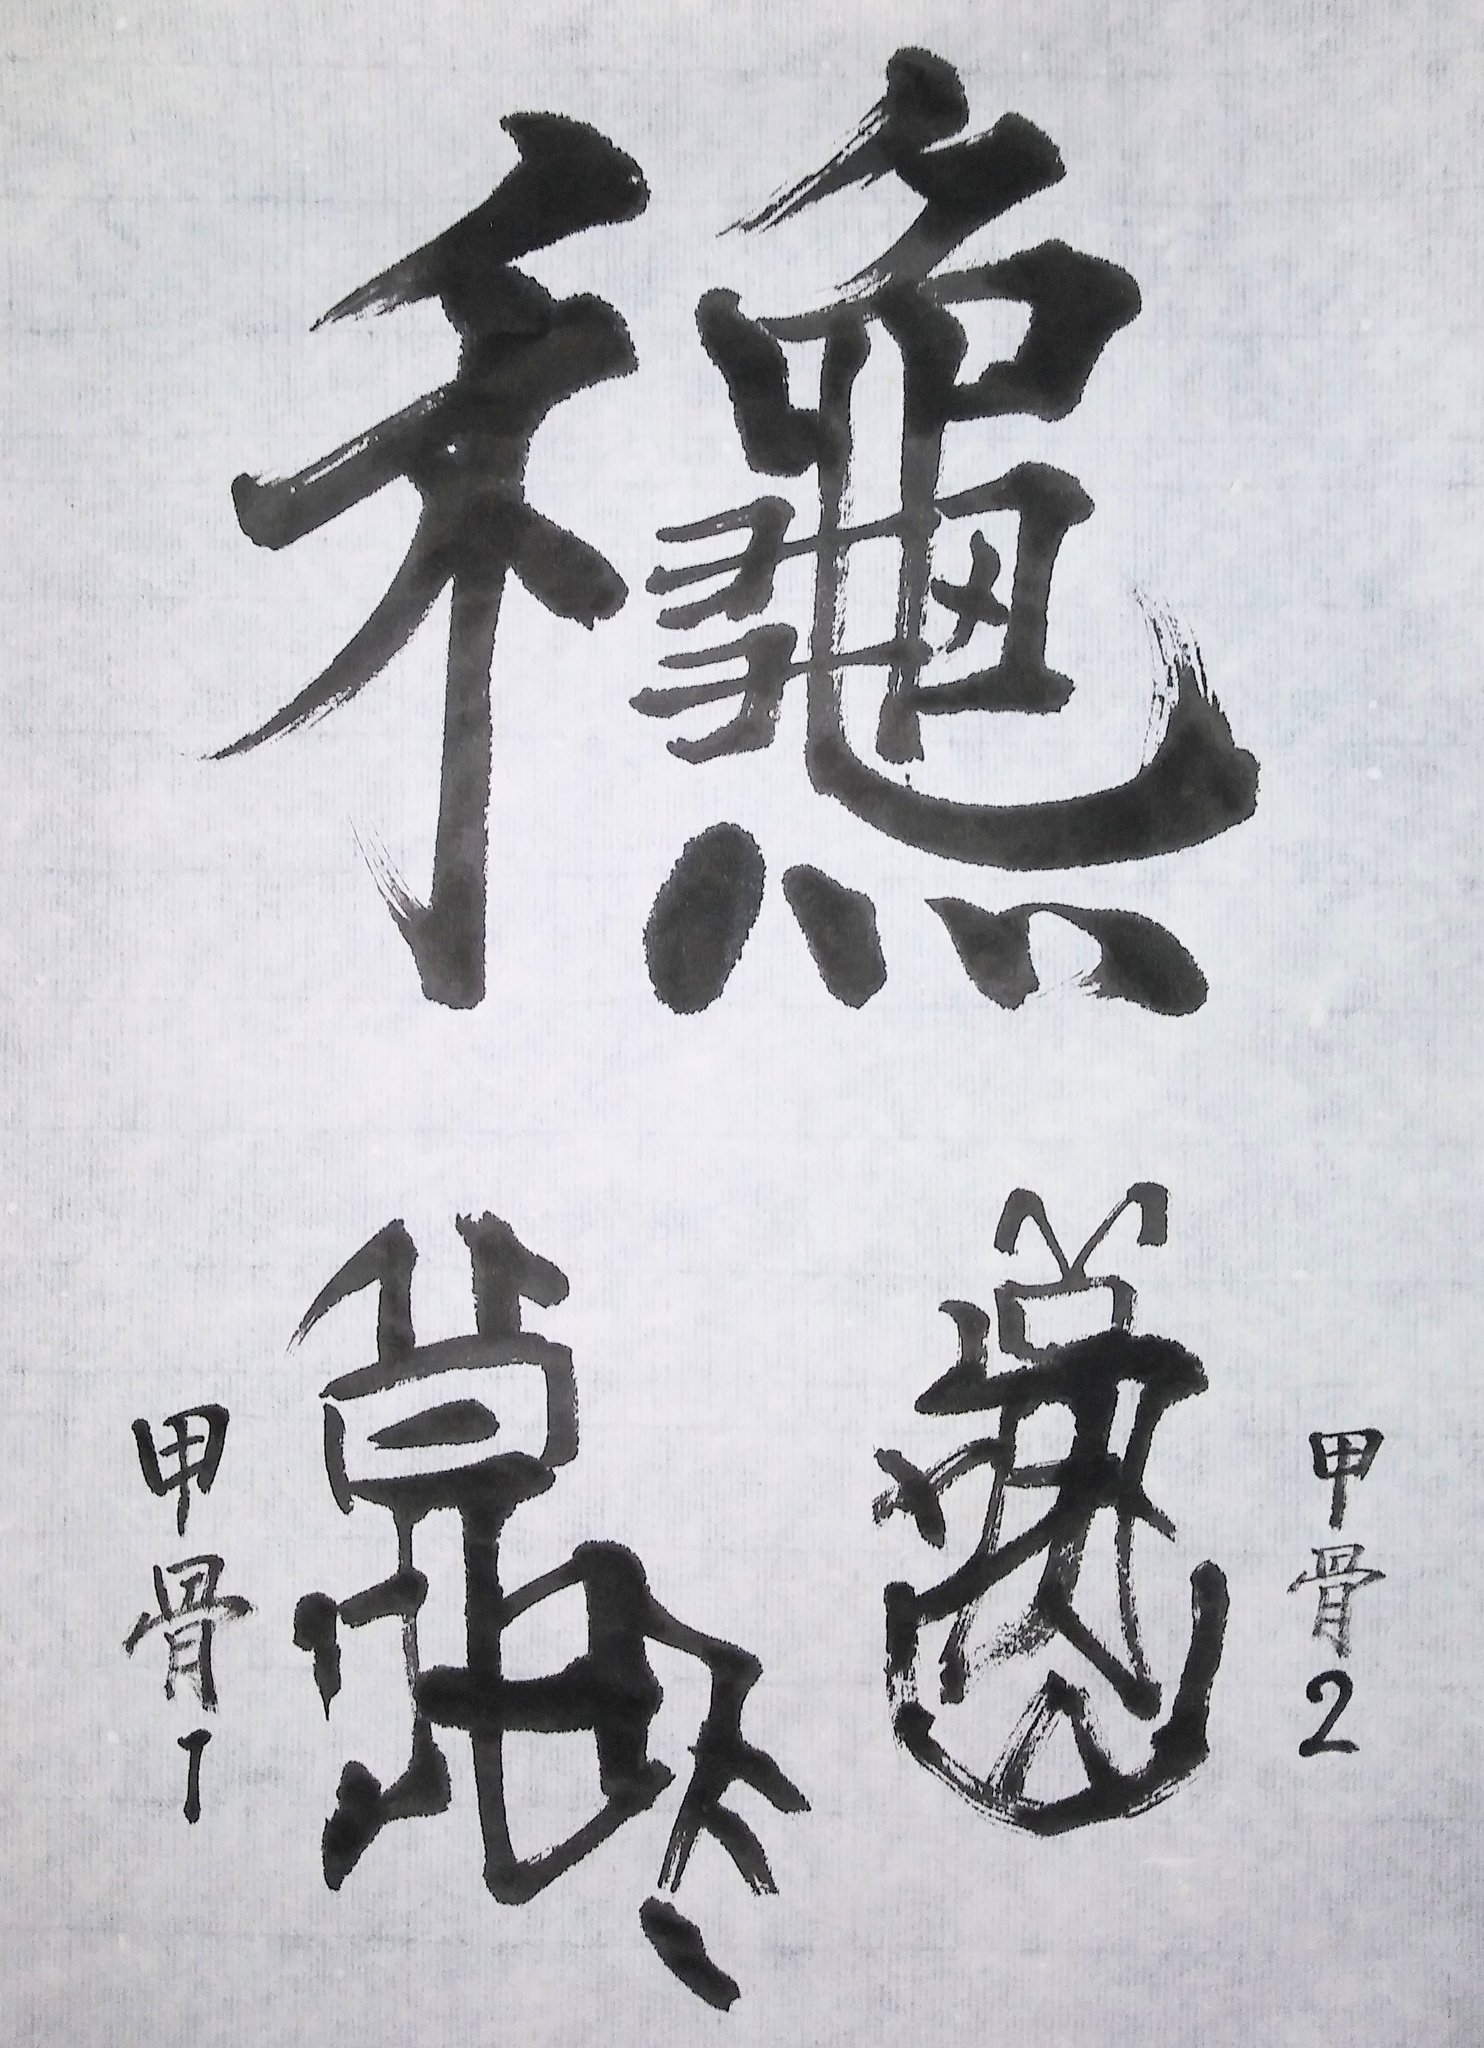 𥤛
甲骨1
甲骨2